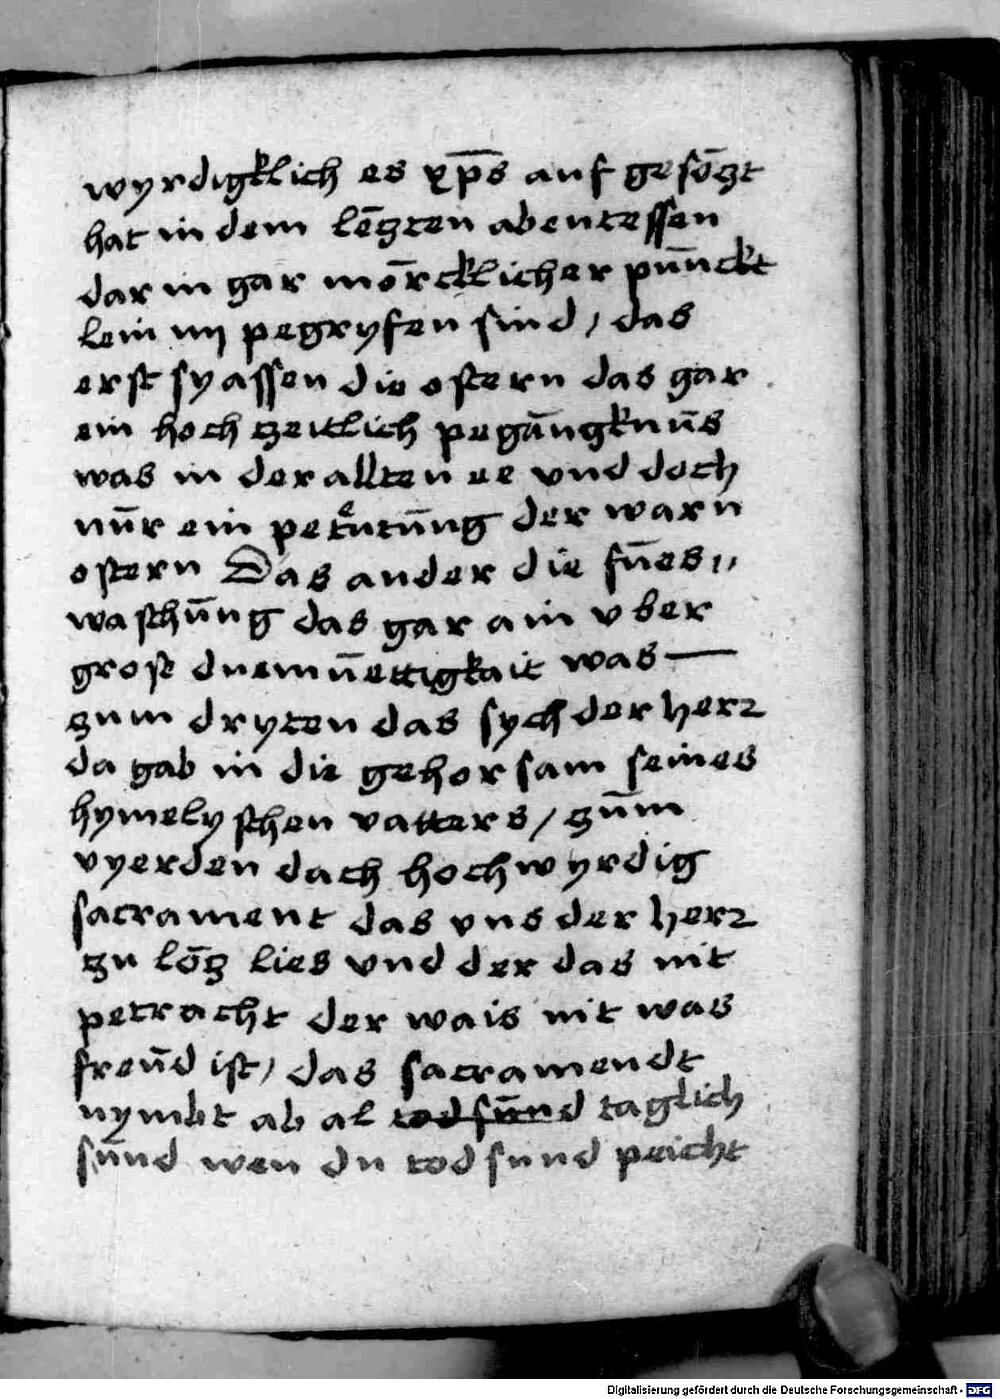 wyrdigklich es xp̄s auf gesōczt
hat in dem lēczten abentessen
dar in gar mōrcklicher pūnckt
lein iiij pegryfen sind / das
erst sy assen die ostern das gar
ein hoch zeitlich pegāngknūs
was in der allten ee vnd doch
nūr ein petᷠutūng der warn
ostern Das ander die fūes〃
waschūng das gar ain vber
grose duemūettigkait was —
zum dryten das sych der herz
da gab in die gehorsam seines
hymelyschen vatters / zūm
vyerden dach hochwyrdig
sacrament das vns der herz
zu lōcz lies vnd der das nit
petracht der wais nit was
freūd ist / das sacramendt
nymbt ab al todsūnd taglich
sūnd wen du tod sund peicht
Digitalisierung gefördert durch die Deutsche Forschungsgemeinschaft - DFG